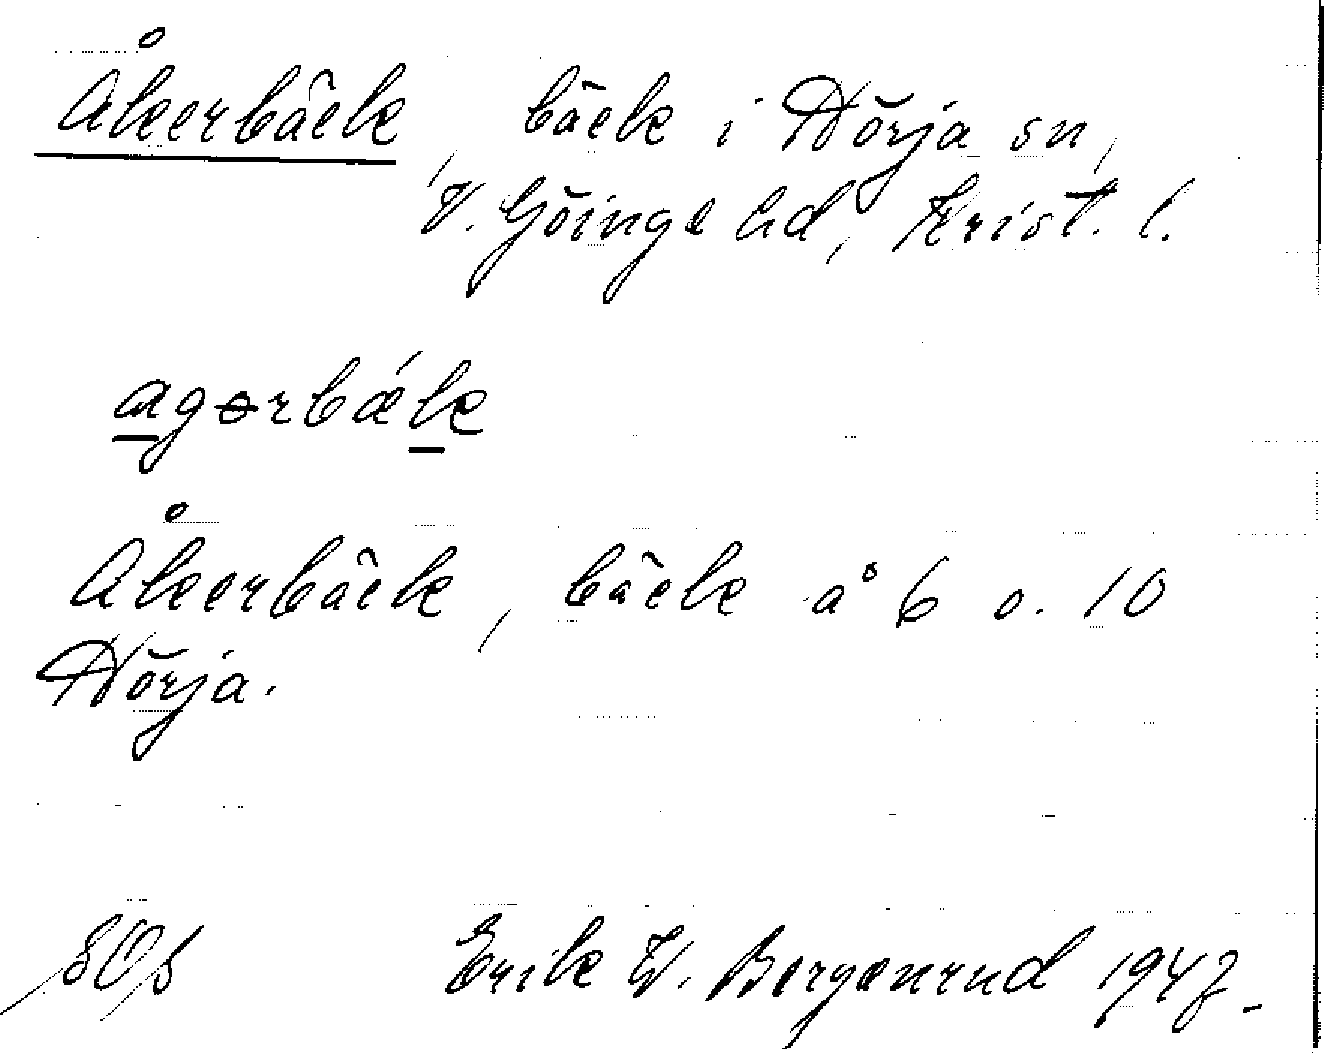 Åkerbäck, bäck i Nörja sn,
V. Göinge hd, Krist. l.
agərbǽk
Åkerbäck, bäck å 6 o. 10
Nörja.
Erik W. Bergenrud 1947.